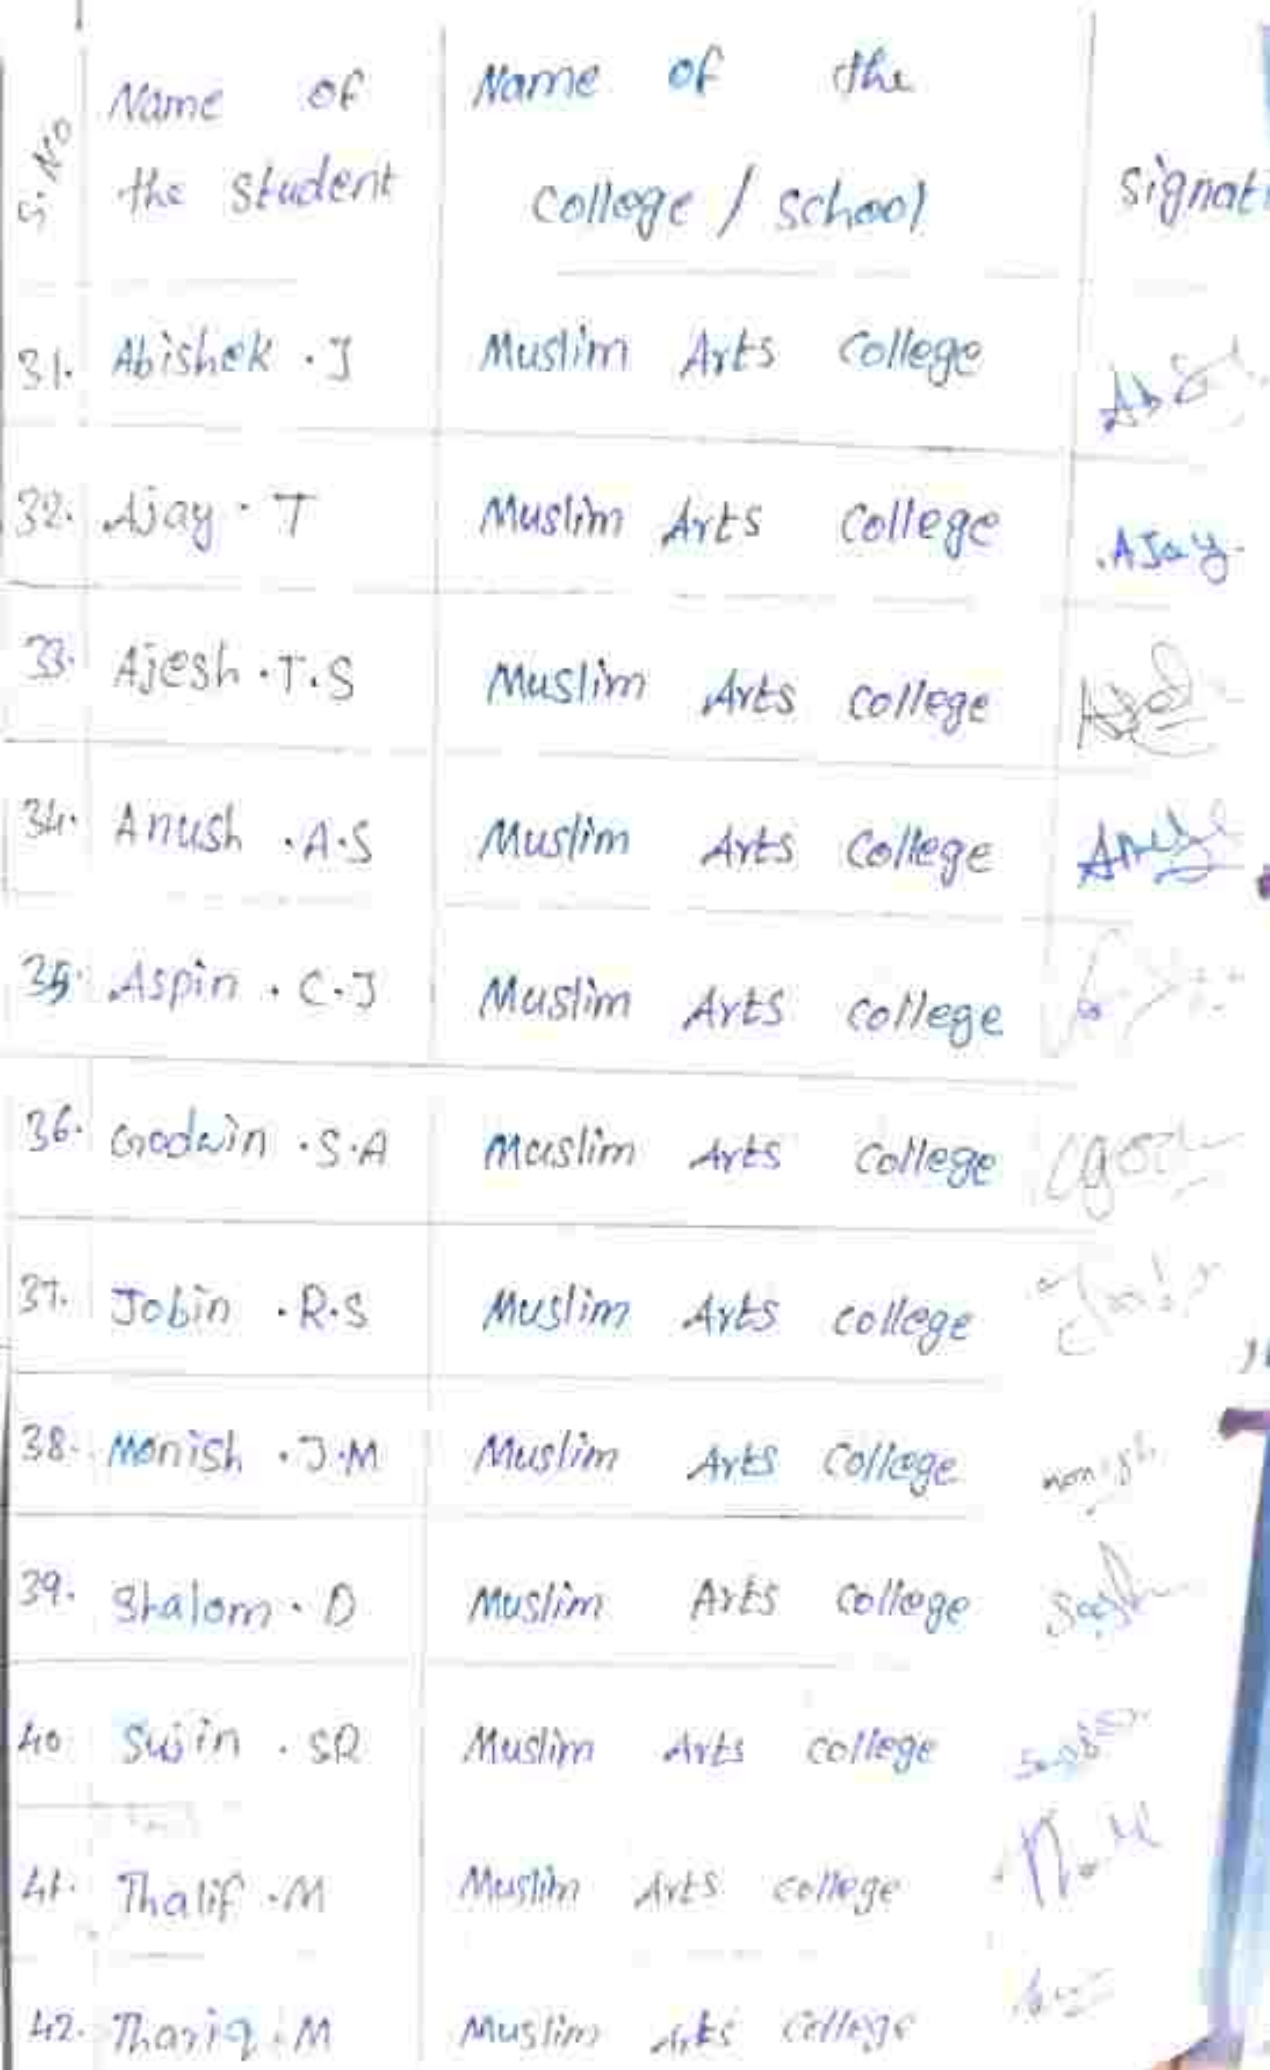 S. No Name of the student Name of the college / school Signat
31. Abishek . J Muslim Arts College
32. Ajay . T Muslim Arts College .AJay.
33. Ajesh . T.S Muslim Arts college
34. Anush . A.S Muslim Arts College
35. Aspin . C.J Muslim Arts college
36. Godwin . S.A Muslim Arts College
37. Jobin . R.S Muslim Arts college
38. Monish . J.M Muslim Arts College monish
39. Shalom . D Muslim Arts College
40 Sujin . SR Muslim Arts college
41. Thalif . M Muslim Arts college
42. Thariq . M Muslim Arts College